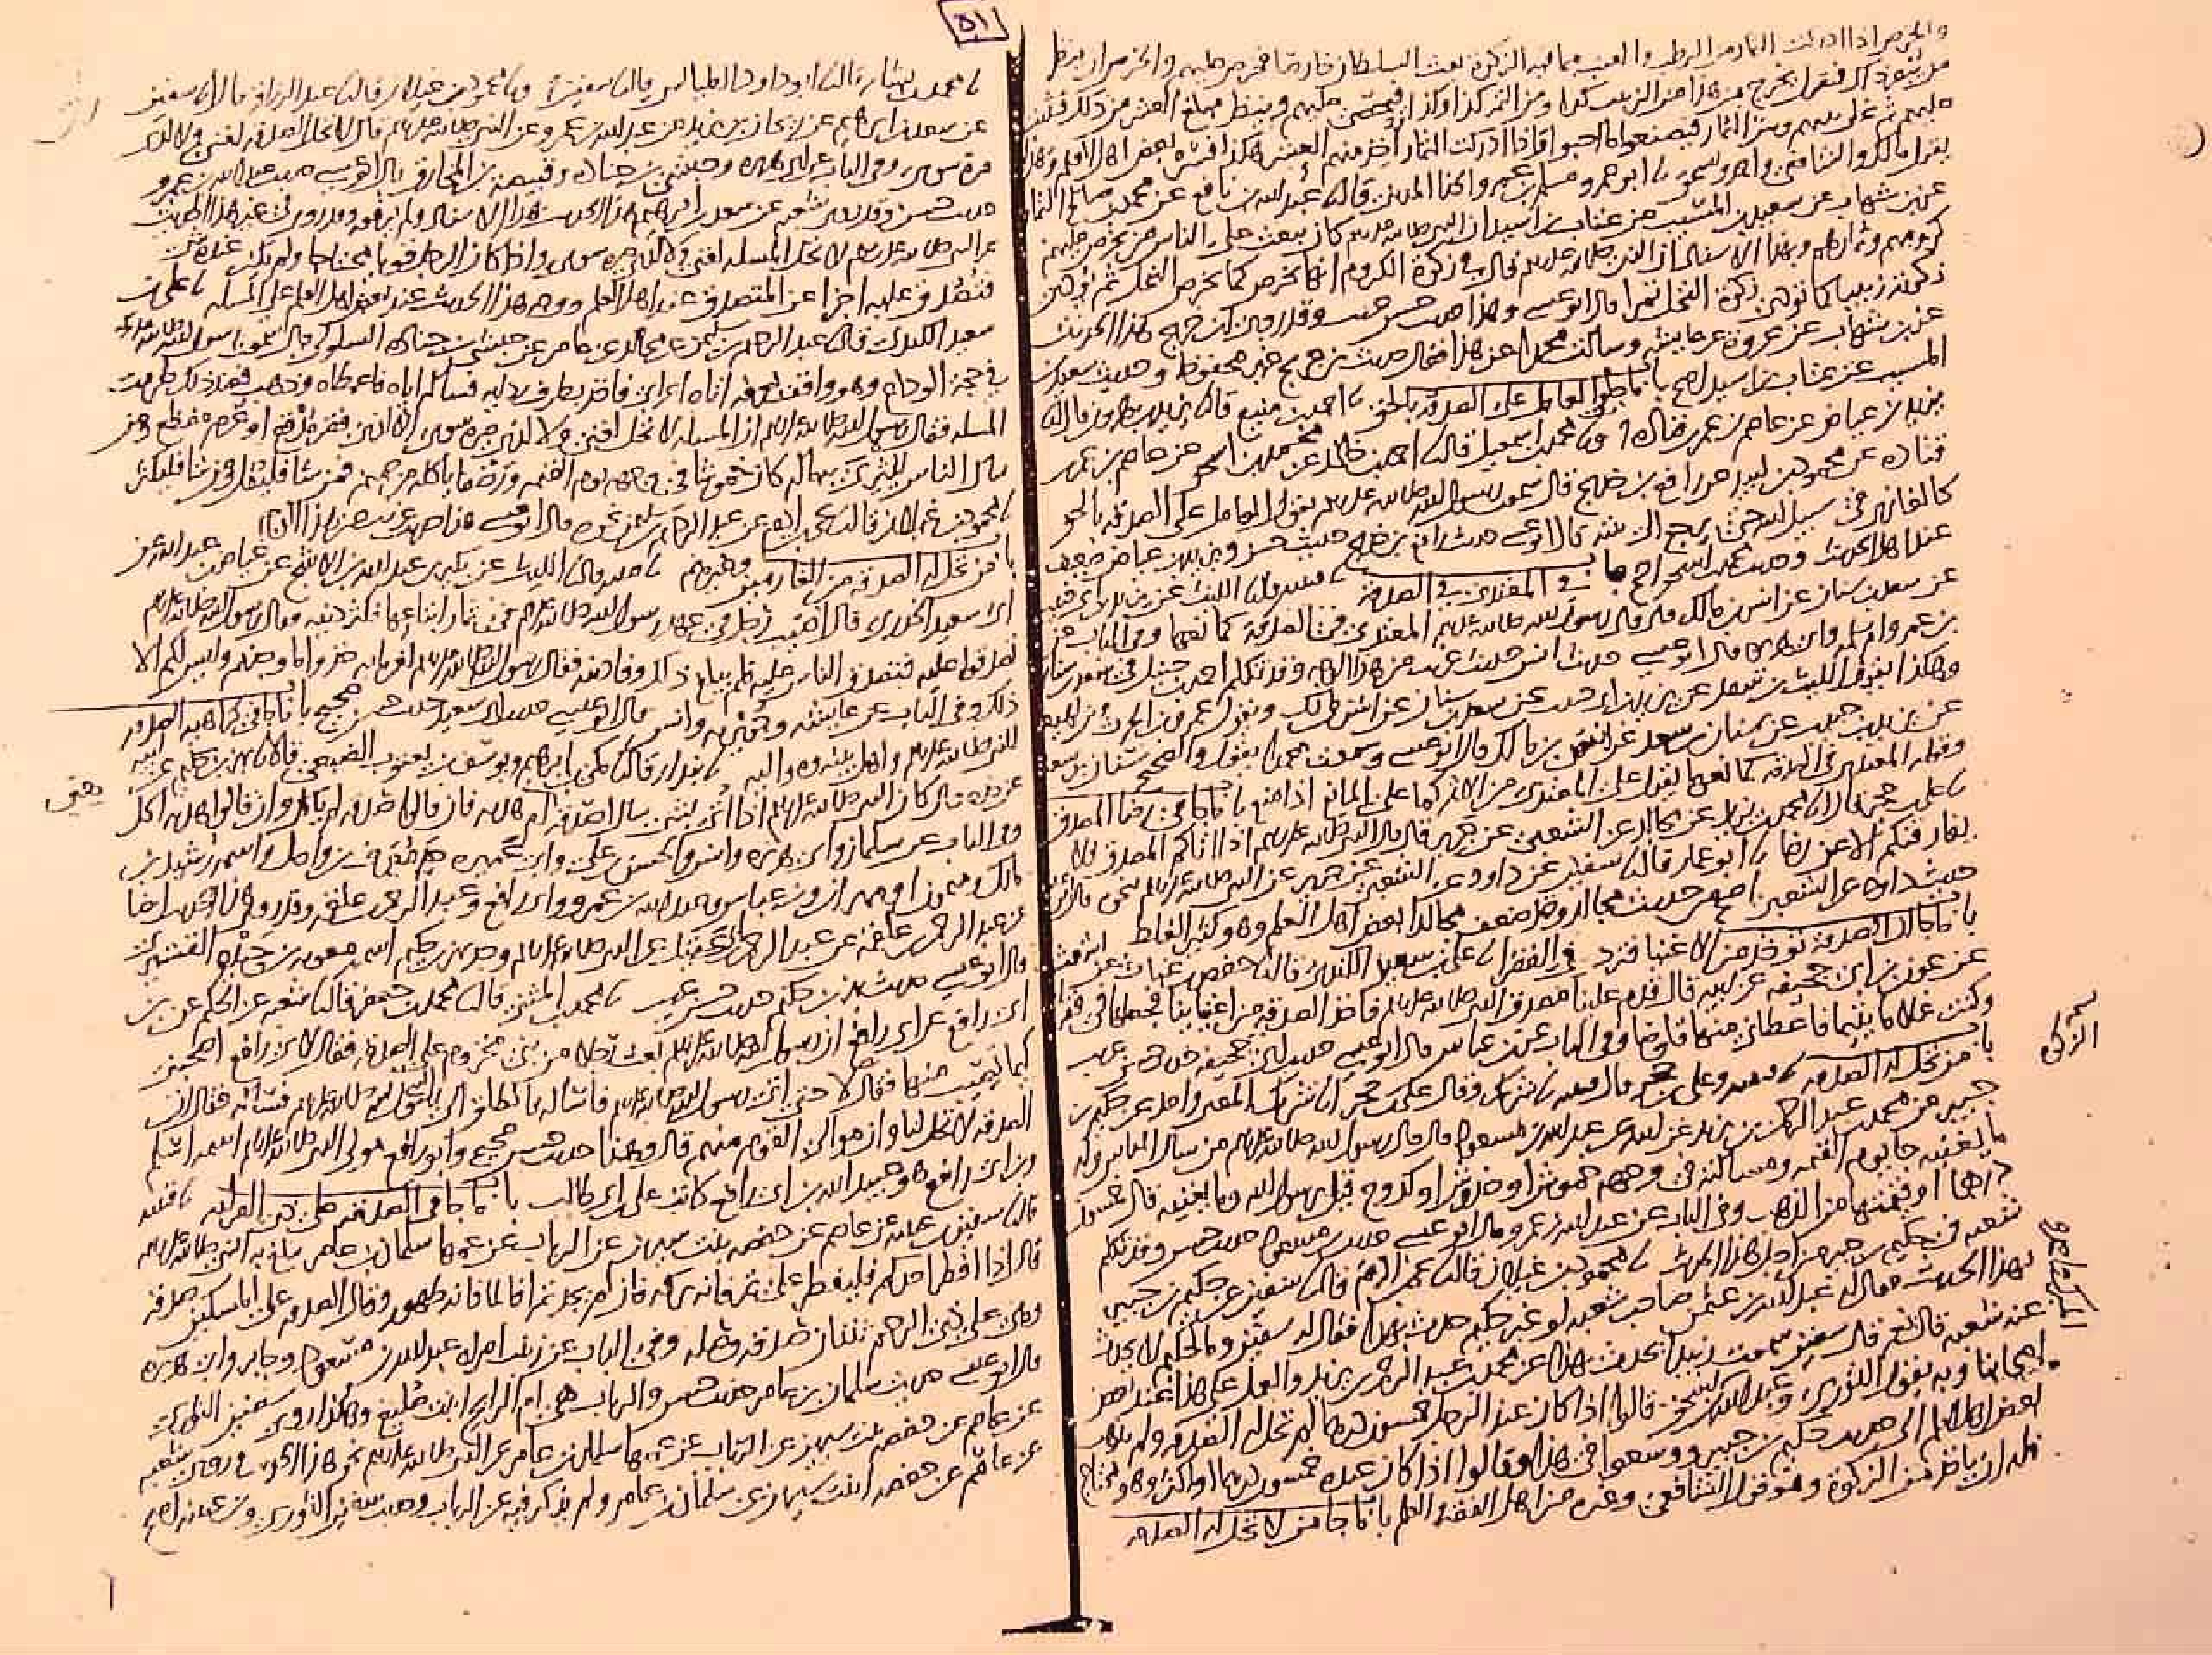 والخرص اذا ادركت الثمار من الرطب والعنب مما فيه الزكوة بعث السلطان خارصا فخرص عليهم والخرص ان ينظر
من يبصر ذلك فيقول يخرج من هذا من الزبيب كذا ومن التمر كذا وكذا فيحصى عليهم وينظر مبلغ العشر من ذلك فيثبت
عليهم ثم يخلى بينهم وبين الثمار فيصنعوا ما احبوا فاذا ادركت الثمار اخذ منهم العشر هكذا فسره بعض اهل العلم وبهذا
يقول مالك والشافعي واحمد واسحق نا ابو عمرو مسلم بن عمرو الحذا المديني قال نا عبد الله بن نافع عن محمد بن صالح التمار
عن بن شهاب عن سعيد بن المسيب عن عتاب بن اسيد ان النبي صلى الله عليه وسلم كان يبعث على الناس من يخرص عليهم
كرومهم وثمارهم وبهذا الاسناد ان النبي صلى الله عليه وسلم قال في زكوة الكروم انها تخرص كما يخرص النخل ثم تودى
زكوته زبيبا كما تودى زكوة النخل تمرا قال ابو عيسى وهذا حديث حسن غريب وقد روى بن جريج هذا الحديث
عن بن شهاب عن عروة عن عايشه وسالت محمدا عن هذا فقال حديث بن جريج غير محفوظ وحديث سعيد بن
المسيب عن عتاب بن اسيد اصح باب ما جا في العامل على الصدقه بالحق نا احمد بن منيع قال نا يزيد بن هرون قال نا
يزيد بن عياض عن عاصم بن عمر بن قتاده ونا محمد بن اسمعيل قال نا احمد بن خالد عن محمد بن اسحق عن عاصم بن عمر بن
قتاده عن محمود بن لبيد عن رافع بن خديج قال سمعت رسول الله صلى الله عليه وسلم يقول العامل على الصدقه بالحق
كالغازي في سبيل الله حتى يرجع الى بيته قال ابو عيسى حديث رافع بن خديج حديث حسن ويزيد بن عياض ضعيف
عند اهل الحديث وحديث محمد بن اسحق اصح باب في المعتدي في الصدقة نا قتيبه قال نا الليث عن يزيد بن ابي حبيب
عن سعد بن سنان عن انس بن مالك قال قال رسول الله صلى الله عليه وسلم المعتدي في الصدقة كما نعها وفي الباب عن
بن عمر وام سلمه وابي هريره قال ابو عيسى حديث انس حديث غريب من هذا الوجه وقد تكلم احمد بن حنبل في سعد بن سنان
وهكذا يقول الليث بن سعد عن يزيد بن ابي حبيب عن سعد بن سنان عن انس بن مالك ويقول عمرو بن الحرث وابن لهيعه
عن يزيد بن ابي حبيب عن سنان بن سعد عن انس بن مالك قال ابو عيسى وسمعت محمدا يقول والصحيح سنان بن سعد
وقوله المعتدي في الصدقه كما نعها يقول على المعتدي من الاثم كما على المانع اذا منع باب ما جا في رضا المصدق
نا علي بن حجر قال نا محمد بن يزيد عن مجالد عن الشعبي عن جرير قال قال النبي صلى الله عليه وسلم اذا اتاكم المصدق فلا
يفارقنكم الا عن رضا نا ابو عمار قال نا سفين عن داود عن الشعبي عن جرير عن النبي صلى الله عليه وسلم نحوه قال ابو عيسى
حديث داود عن الشعبي اصح من حديث مجالد وقد ضعف مجالدا بعض اهل العلم وهو كثير الغلط
باب ما جا ان الصدقة توخذ من الاغنيا فترد في الفقرا نا علي بن سعيد الكندي قال نا حفص بن غياث عن اشعث
عن عون بن ابي جحيفه عن ابيه قال قدم علينا مصدق النبي صلى الله عليه وسلم فاخذ الصدقه من اغنياينا فجعلها في فقراينا
وكنت غلاما يتيما فاعطاني منها قلوصا وفي الباب عن بن عباس قال ابو عيسى حديث ابي جحيفه حديث غريب
باب من تحل له الصدقه نا قتيبه وعلي بن حجر قال قتيبه نا شريك وقال علي بن حجر انا شريك المعنى واحد عن حكيم بن
جبير عن محمد بن عبد الرحمن بن يزيد عن ابيه عن عبد الله بن مسعود قال قال رسول الله صلى الله عليه وسلم من سال الناس وله
ما يغنيه جا يوم القيمه ومسالته في وجهه خموش او خدوش او كدوح قيل يرسول الله وما يغنيه قال خمسون
درهما او قيمتها من الذهب وفي الباب عن عبد الله بن عمرو قال ابو عيسى حديث بن مسعود حديث حسن وقد تكلم
شعبه في حكيم بن جبير من اجل هذا الحديث نا محمود بن غيلان قال نا يحيى بن ادم قال نا سفين عن حكيم بن جبير
بهذا الحديث فقال له عبد الله بن عثمن صاحب شعبه لو غير حكيم حدث بهذا فقال له سفين وما لحكيم لا يحدث
عنه شعبه قال نعم قال سفين سمعت زبيدا يحدث بهذا عن محمد بن عبد الرحمن بن يزيد والعمل على هذا عند بعض
اصحابنا وبه يقول الثوري وعبد الله واسحق قالوا اذا كان عند الرجل خمسون درهما لم تحل له الصدقه ولم يذهب
بعض اهل العلم الى حديث حكيم بن جبير ووسعوا في هذا وقالوا اذا كان عنده خمسون درهما او اكثر وهو محتاج
فله ان ياخذ من الزكوة وهو قول الشافعي وغيره من اهل الفقه والعلم باب ما جا من لا تحل له الصدقه
٥١
نا محمد بن بشار قال نا ابو داود الطيالسي قال نا سفين ونا محمود بن غيلان قال نا عبد الرزاق قال انا سفين
عن سعد بن ابرهيم عن ريحان بن يزيد عن عبد الله بن عمرو عن النبي صلى الله عليه وسلم قال لا تحل الصدقه لغني ولا لذي
مرة سوي وفي الباب عن ابي هريره وحبشي بن جناده وقبيصه بن المخارق قال ابو عيسى حديث عبد الله بن عمرو
حديث حسن وقد روى شعبه عن سعد بن ابرهيم هذا الحديث بهذا الاسناد ولم يرفعه وقد روي في غير هذا الحديث
عن النبي صلى الله عليه وسلم لا تحل المسله لغني ولا لذي مره سوي واذا كان الرجل قويا محتاجا ولم يكن عنده شي
فتصدق عليه اجزا عن المتصدق عند اهل العلم ووجه هذا الحديث عند بعض اهل العلم على المسله نا علي بن
سعيد الكندي قال نا عبد الرحيم بن سليمن عن مجالد عن عامر عن حبشي بن جناده السلولي قال سمعت رسول الله صلى الله عليه وسلم
في حجة الوداع وهو واقف بعرفه اتاه اعرابي فاخذ بطرف ردايه فساله اياه فاعطاه وذهب فعند ذلك حرمت
المسله فقال رسول الله صلى الله عليه وسلم ان المسله لا تحل لغني ولا لذي مره سوي الا لذي فقر مدقع او غرم مفظع ومن
سال الناس ليثري به ماله كان خموشا في وجهه يوم القيمه ورضفا ياكله من جهنم فمن شا فليقل ومن شا فليكثر
نا محمود بن غيلان قال نا يحيى بن ادم عن عبد الرحيم بن سليمن نحوه قال ابو عيسى هذا حديث غريب من هذا الوجه
باب من تحل له الصدقه من الغارمين وغيرهم نا قتيبه قال نا الليث عن بكير بن عبد الله بن الاشج عن عياض بن عبد الله عن
ابي سعيد الخدري قال اصيب رجل في عهد رسول الله صلى الله عليه وسلم في ثمار ابتاعها فكثر دينه فقال رسول الله صلى الله عليه وسلم
تصدقوا عليه فتصدق الناس عليه فلم يبلغ ذلك وفا دينه فقال رسول الله صلى الله عليه وسلم لغرمايه خذوا ما وجدتم وليس لكم الا
ذلك وفي الباب عن عايشه وجويريه وانس قال ابو عيسى حديث ابي سعيد حديث حسن صحيح باب ما جا في كراهيه الصدقه
للنبي صلى الله عليه وسلم واهل بيته ومواليه نا بندار قال نا مكي بن ابرهيم ويوسف بن يعقوب الضبعي قالا نا بهز بن حكيم عن ابيه
عن جده قال كان النبي صلى الله عليه وسلم اذا اتي بشي سال اصدقه ام هديه فان قالوا صدقه لم ياكل وان قالوا هديه اكل
وفي الباب عن سلمان وابي هريره وانس والحسن بن علي وابي عميره جد معرف بن واصل واسمه رشيد بن
مالك وميمون او مهران وبن عباس وعبد الله بن عمرو وابي رافع وعبد الرحمن بن علقمه وقد روي هذا الحديث ايضا
عن عبد الرحمن بن علقمه عن عبد الرحمن بن ابي عقيل عن النبي صلى الله عليه وسلم وجد بهز بن حكيم اسمه معويه بن حيده القشيري
قال ابو عيسى حديث بهز بن حكيم حديث حسن غريب نا محمد بن المثنى قال نا محمد بن جعفر قال نا شعبه عن الحكم عن بن
ابي رافع عن ابي رافع ان رسول الله صلى الله عليه وسلم بعث رجلا من بني مخزوم على الصدقه فقال لابي رافع اصحبني
كيما تصيب منها فقال لا حتى اتي رسول الله صلى الله عليه وسلم فاساله فانطلق الى رسول الله صلى الله عليه وسلم فساله فقال ان
الصدقه لا تحل لنا وان موالي القوم منهم قال وهذا حديث حسن صحيح وابو رافع مولى النبي صلى الله عليه وسلم اسمه اسلم
وبن ابي رافع هو عبيد الله بن ابي رافع كاتب علي بن ابي طالب باب ما جا في الصدقه على ذي القرابه نا قتيبه
قال نا سفين بن عيينه عن عاصم عن حفصه بنت سيرين عن الرباب عن عمها سلمان بن عامر يبلغ به النبي صلى الله عليه وسلم
قال اذا افطر احدكم فليفطر على تمر فانه بركه فان لم يجد تمرا فالما فانه طهور وقال الصدقه على المسكين صدقه
وهي على ذي الرحم ثنتان صدقه وصله وفي الباب عن زينب امراه عبد الله بن مسعود وجابر وابي هريره
قال ابو عيسى حديث سلمان بن عامر حديث حسن والرباب هي ام الرايح ابنت صليع وهكذا روى سفين الثوري
عن عاصم عن حفصه بنت سيرين عن الرباب عن عمها سلمان بن عامر عن النبي صلى الله عليه وسلم نحو هذا الحديث وروى شعبه
عن عاصم عن حفصه ابنت سيرين عن سلمان بن عامر ولم يذكر فيه عن الرباب وحديث سفين الثوري وبن عيينه اصح